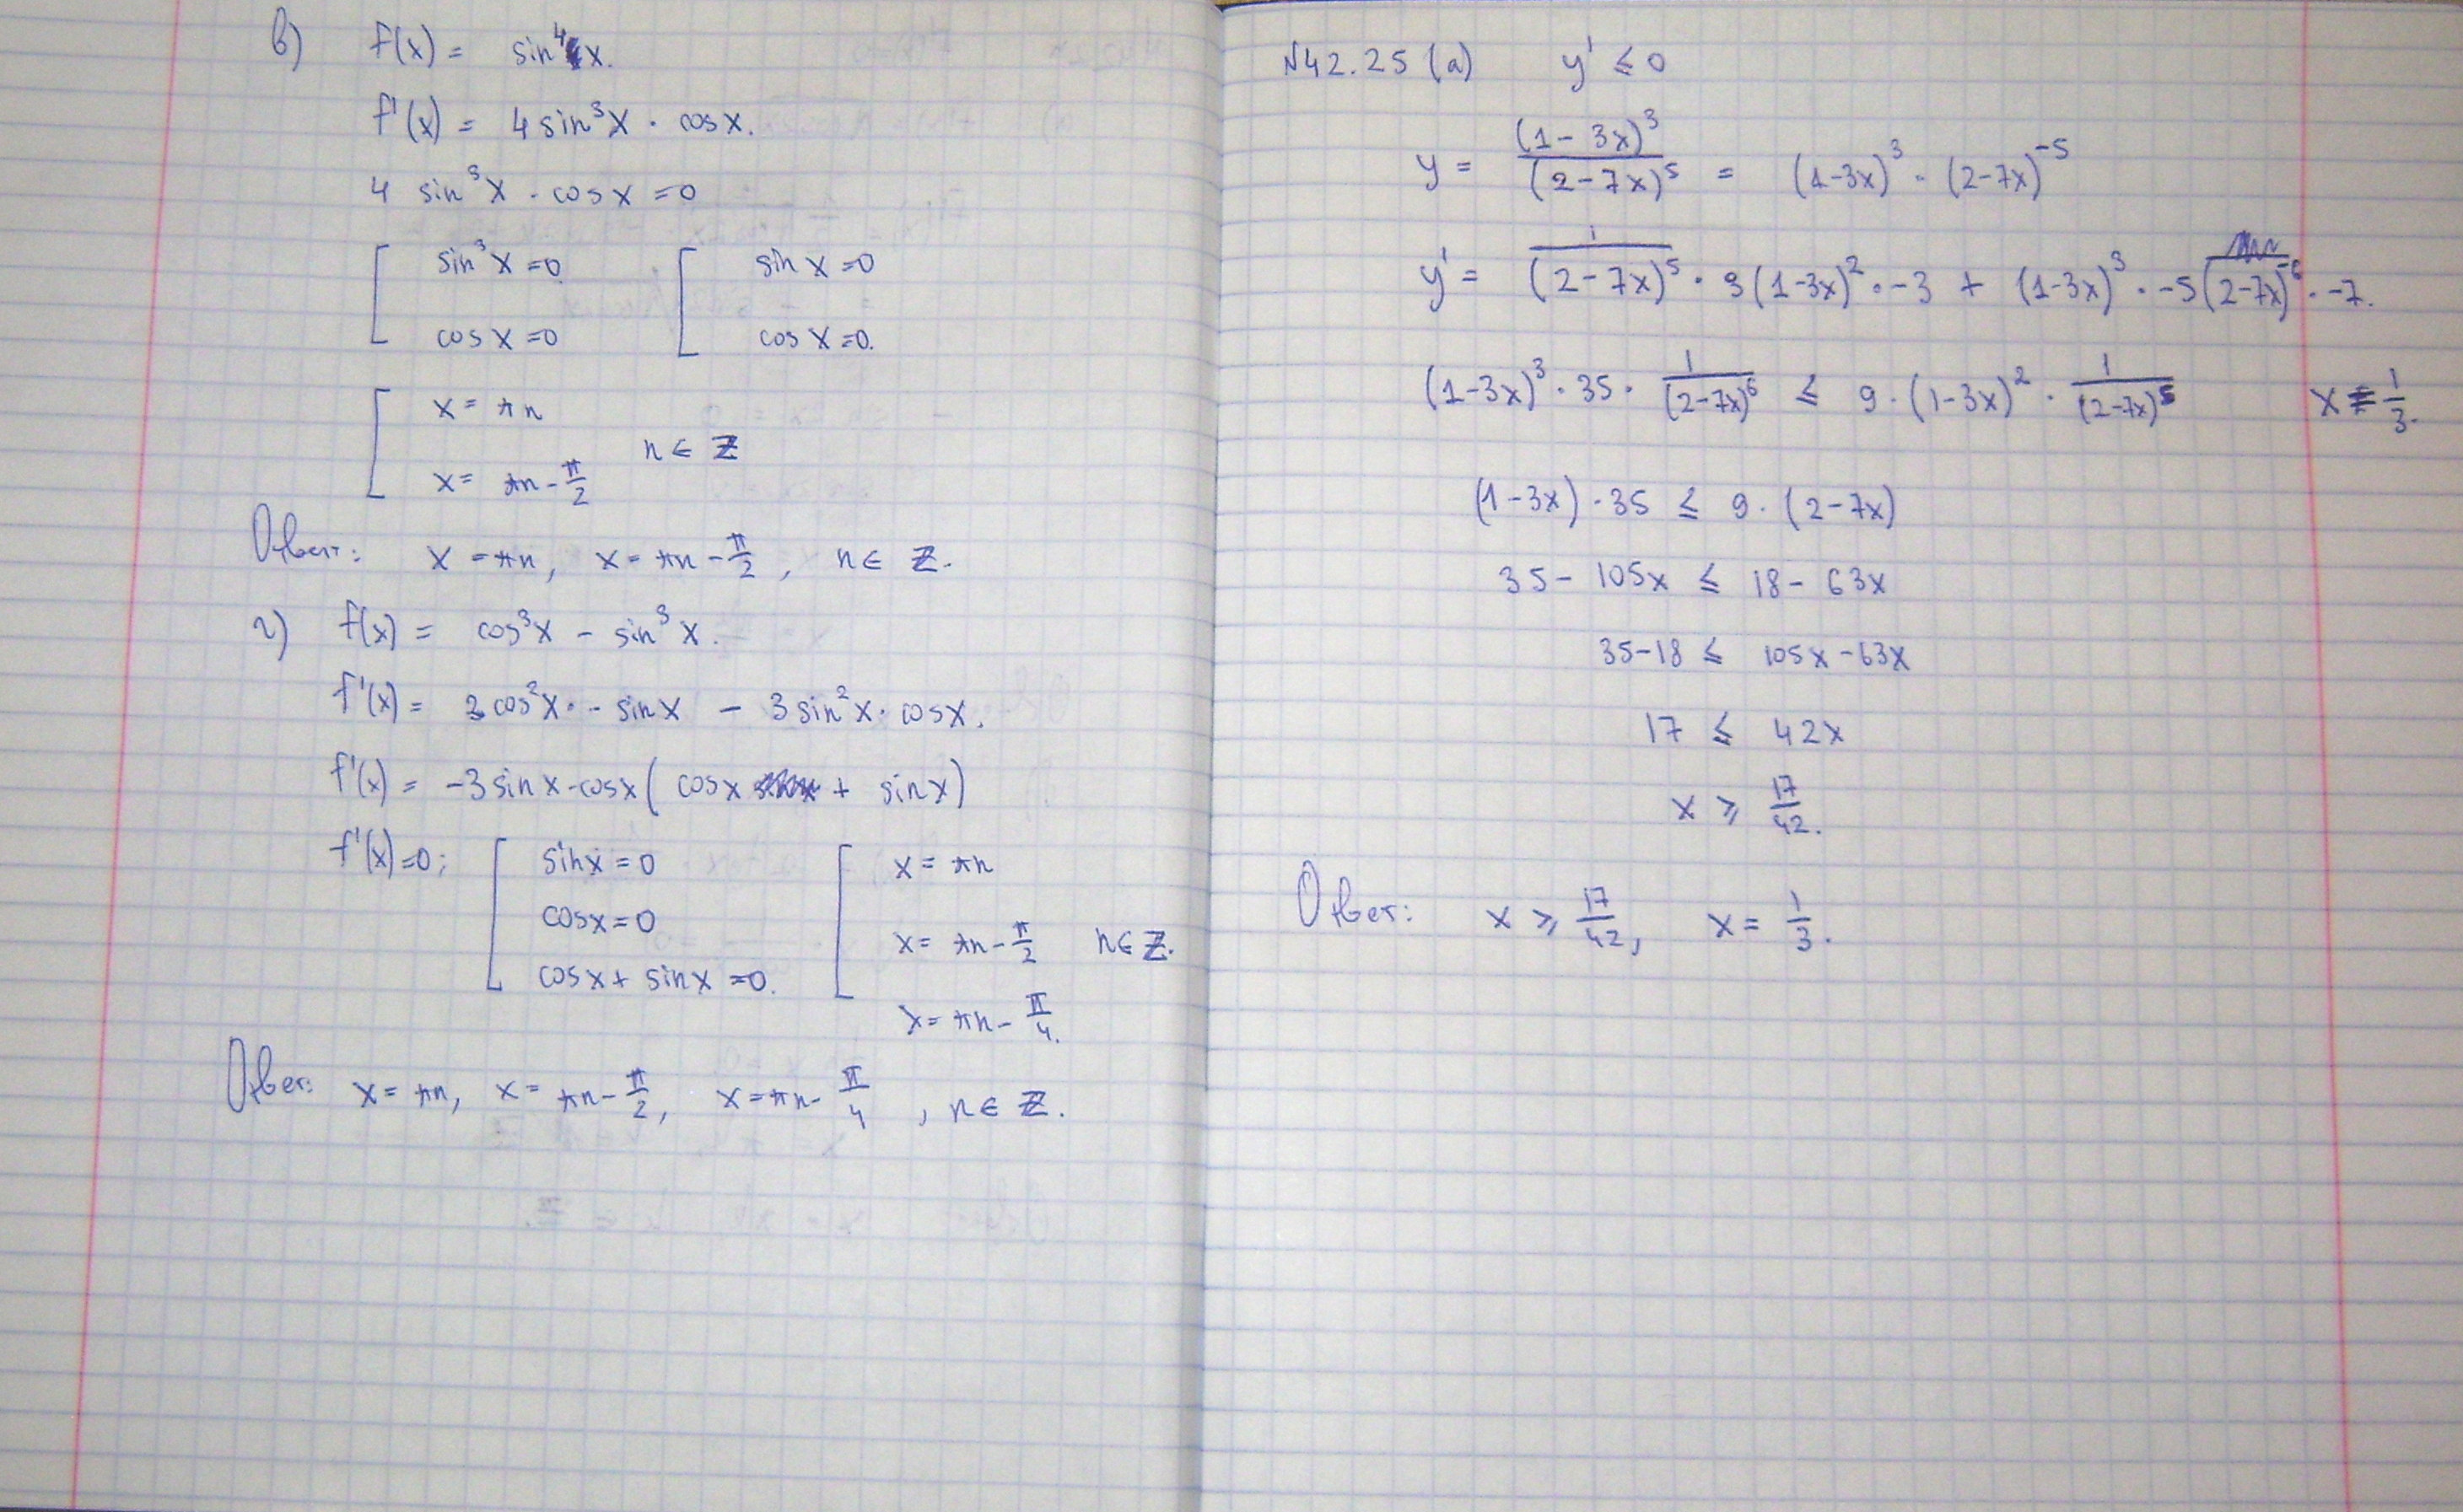 в) f(x) = sin⁴x.
f'(x) = 4 sin³x · cos x.
4 sin³x · cos x = 0
[ sin³x = 0 [ sin x = 0
cos x = 0 cos x = 0.
[ x = πn
x = πn - π/2 n ∈ Z
Ответ: x = πn, x = πn - π/2, n ∈ Z.
г) f(x) = cos³x - sin³x.
f'(x) = 3 cos²x · - sin x - 3 sin²x · cos x.
f'(x) = -3 sin x · cos x ( cos x + sin x)
f'(x) = 0; [ sin x = 0 [ x = πn
cos x = 0 x = πn - π/2 n ∈ Z.
cos x + sin x = 0. x = πn - π/4.
Ответ: x = πn, x = πn - π/2, x = πn - π/4, n ∈ Z.
№42.25 (а) y' ≤ 0
y = (1 - 3x)³/(2 - 7x)⁵ = (1-3x)³ · (2-7x)⁻⁵
y' = 1/(2 - 7x)⁵ · 3(1-3x)² · -3 + (1-3x)³ · -5(2-7x)⁻⁶ · -7.
(1-3x)³ · 35 · 1/(2-7x)⁶ ≤ 9 · (1-3x)² · 1/(2-7x)⁵ x ≠ 1/3.
(1-3x) · 35 ≤ 9 · (2-7x)
35 - 105x ≤ 18 - 63x
35-18 ≤ 105x - 63x
17 ≤ 42x
x ⩾ 17/42.
Ответ: x ⩾ 17/42, x = 1/3.